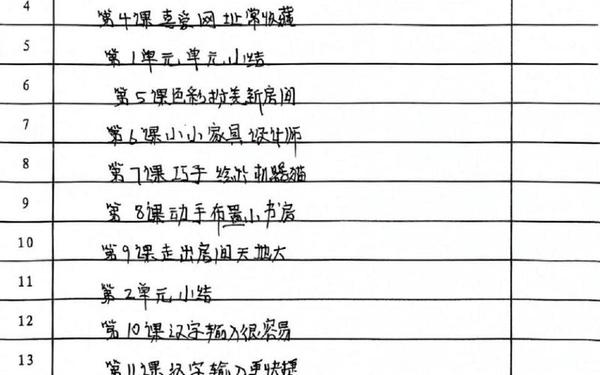 4 第4课喜爱网址常收藏
5 第1单元单元小结
6 第5课色彩扮美新房间
7 第6课小小家具设计师
8 第7课巧手绘机器猫
9 第8课动手布置小书房
10 第9课走出房间天地大
11 第2单元小结
12 第10课汉字输入很容易
13 第11课汉字输入更快捷